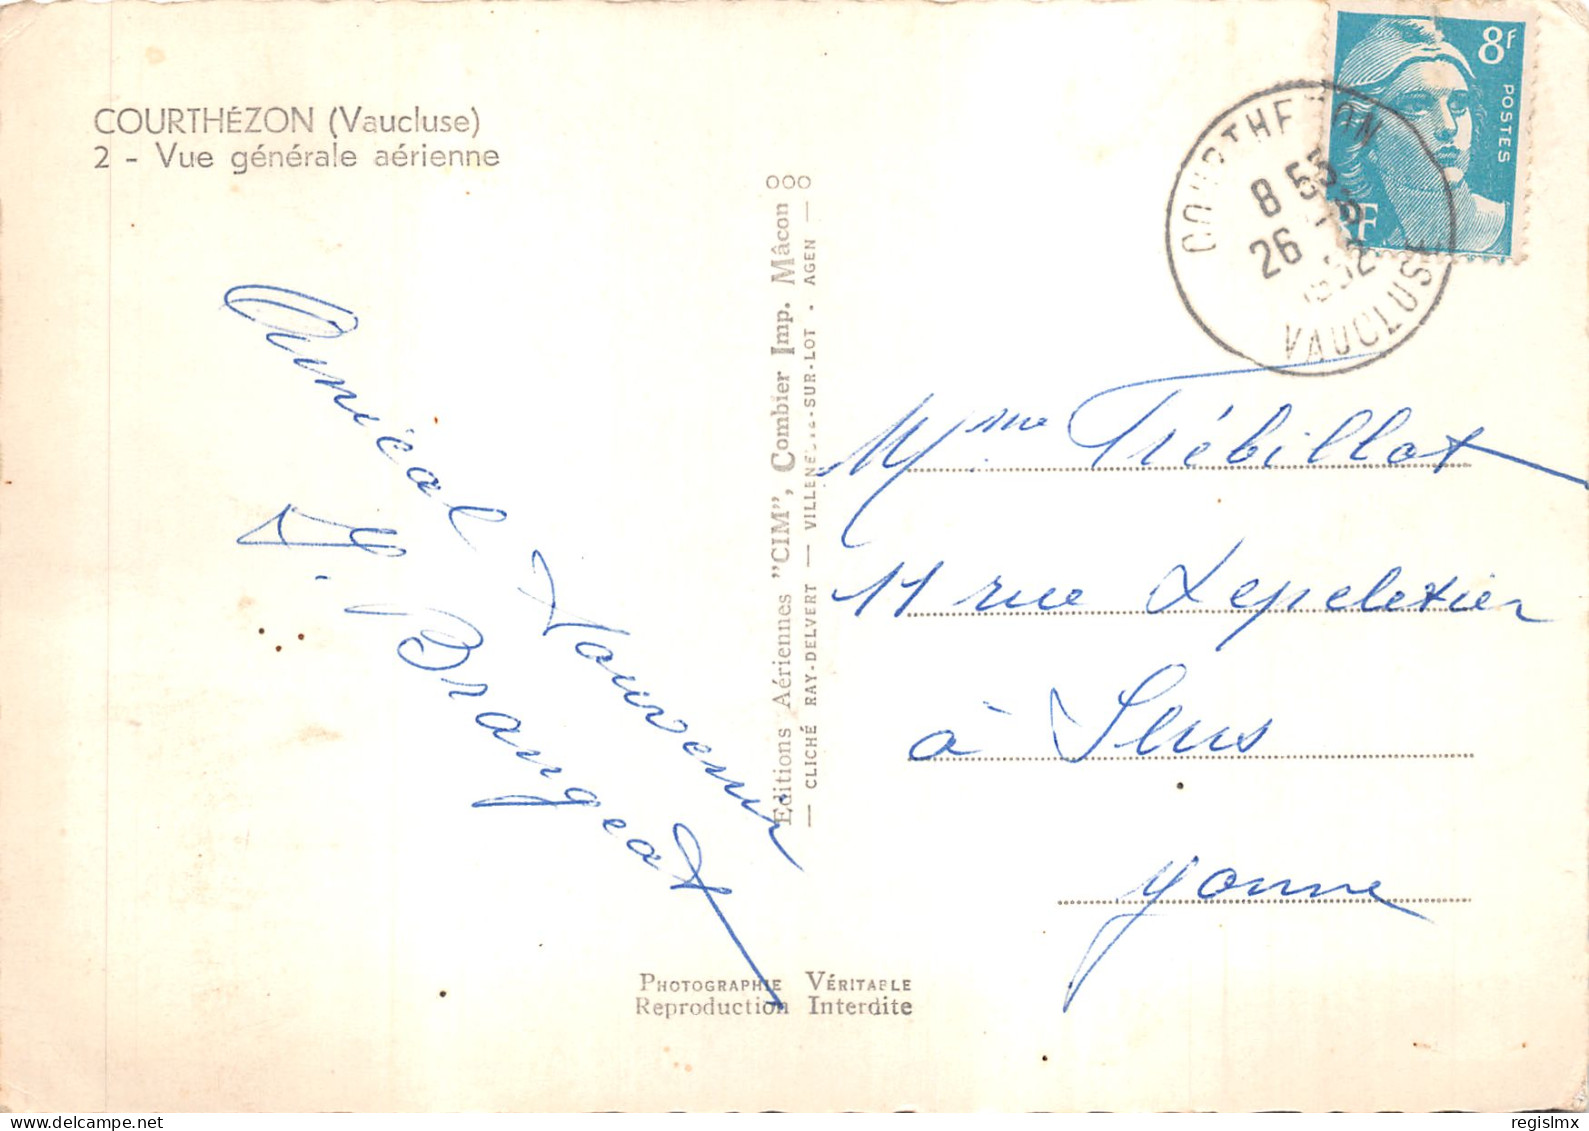 COURTHÉZON (Vaucluse)
2 - Vue générale aérienne
8f
POSTES
RF
COURTHEZON
8
26
1952
VAUCLUSE
Amical Souvenir
Brangeot
Editions Aériennes "CIM", Combier Imp. Mâcon ooo
— CLICHÉ RAY-DELVERT — VILLENEUVE-SUR-LOT - AGEN —
Mme Trébillot
11 rue Lepeletier
à Sens
Yonne
PHOTOGRAPHIE VÉRITABLE
Reproduction Interdite
regislmx